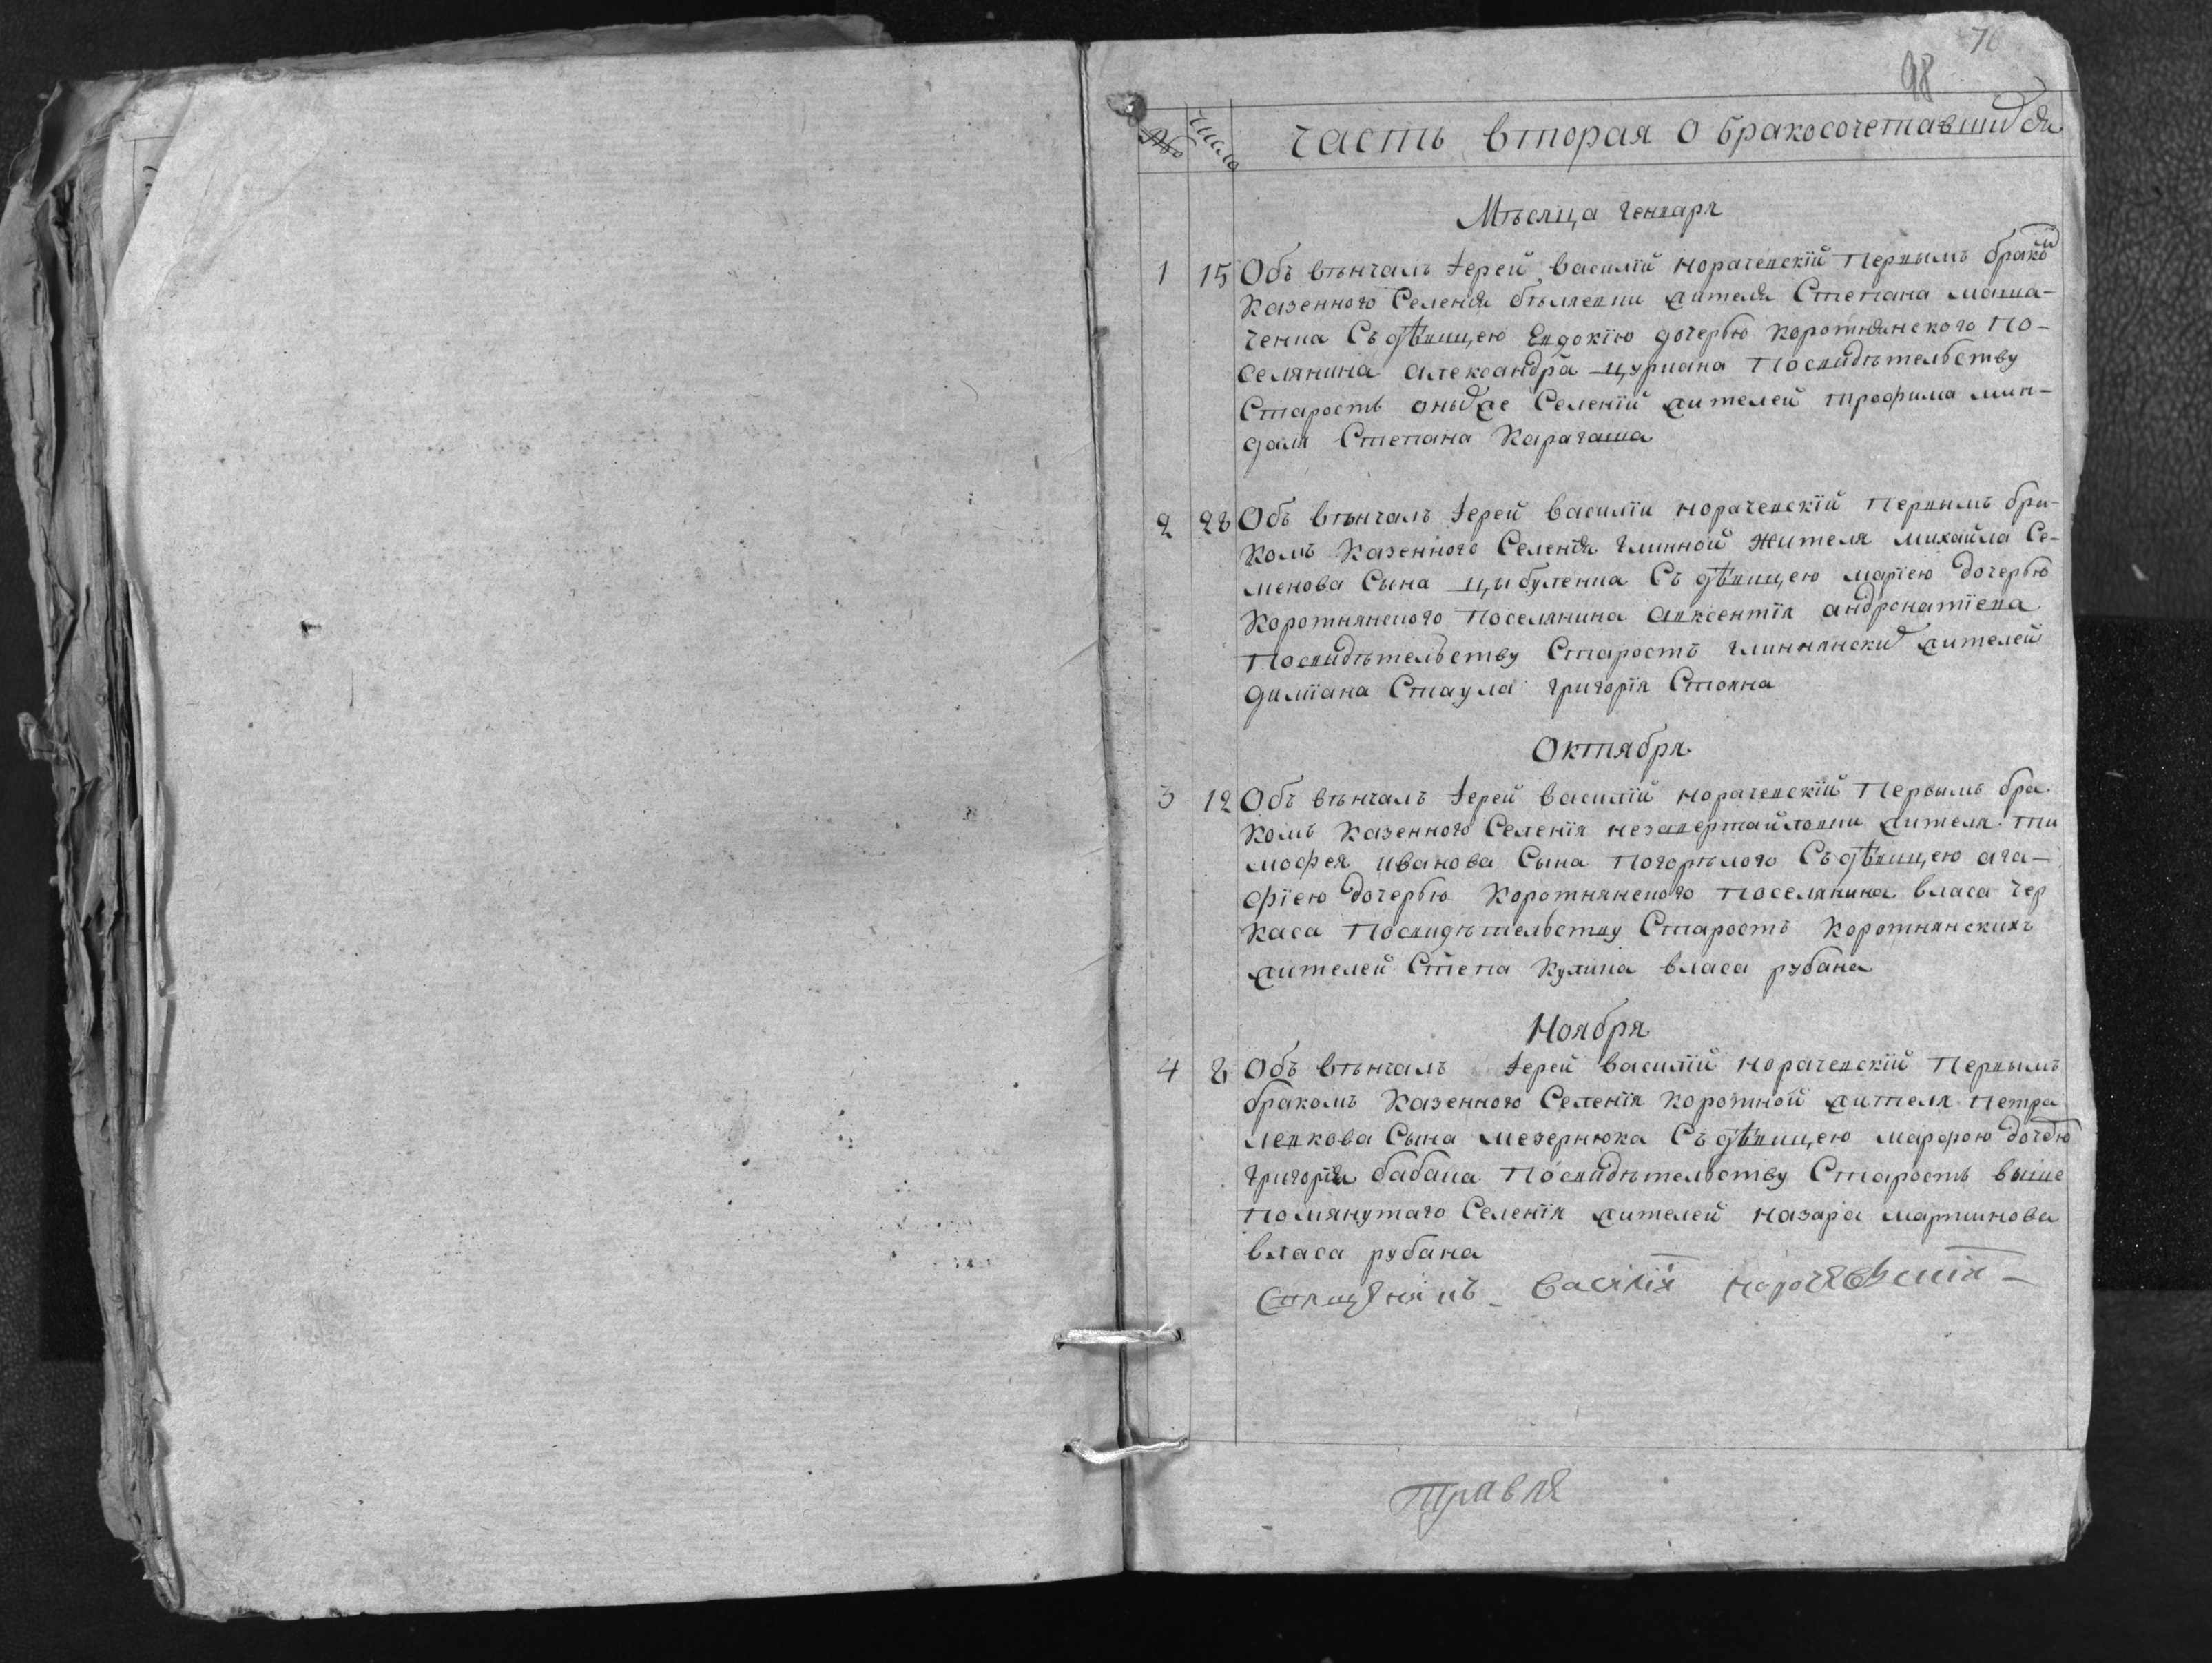 98
Число
часть вторая о бракосочетавшихся
Мѣсяца генваря
1 15 Объ вѣнчалъ Іерей василій норачевскій Первымъ бракомъ
Казенного Селенія бѣляевки жителя Степана
Съ дѣвицею Евдокію дочерью коротнянского По-
селянина александра цуркана Посвидѣтельству
Старостъ оныхже Селеній жителей трофима мин-
даля Степана Карагаша
2 28 Объ вѣнчалъ Іерей василіи норачевскій Первымъ бра-
комъ Казенного Селенія глинной жителя михайла Се-
менова Сына цыбуленка Съ дѣвицею маріею дочерью
Коротнянского Поселянина авксентія андронатіева
Посвидѣтельству Старостъ глиннянских жителей
диміана Стаула григорія Стояна
Октября
3 12 Объ вѣнчалъ Іерей василій норачевскій Первымъ бра
комъ Казенного Селенія незавертайловки жителя ти
мофея иванова Сына погорѣлого Съ дѣвицею ага-
фіею дочерью Коротнянского Поселянина власа чер
каса Посвидѣтельству Старостъ Коротнянскихъ
жителей Степа Кулика власа рубана
Ноября
4 8 Объ вѣнчалъ Іерей василій норачевскій Первымъ
бракомъ Казенного Селенія коротной жителя Петра
левкова Сына мезернюка Съ дѣвицею марфою дочерю
григорія бабана Посвидѣтельству Старостъ выше
помянутаго Селенія жителей назара мартинова
власа рубана
Священикъ василій норочевский